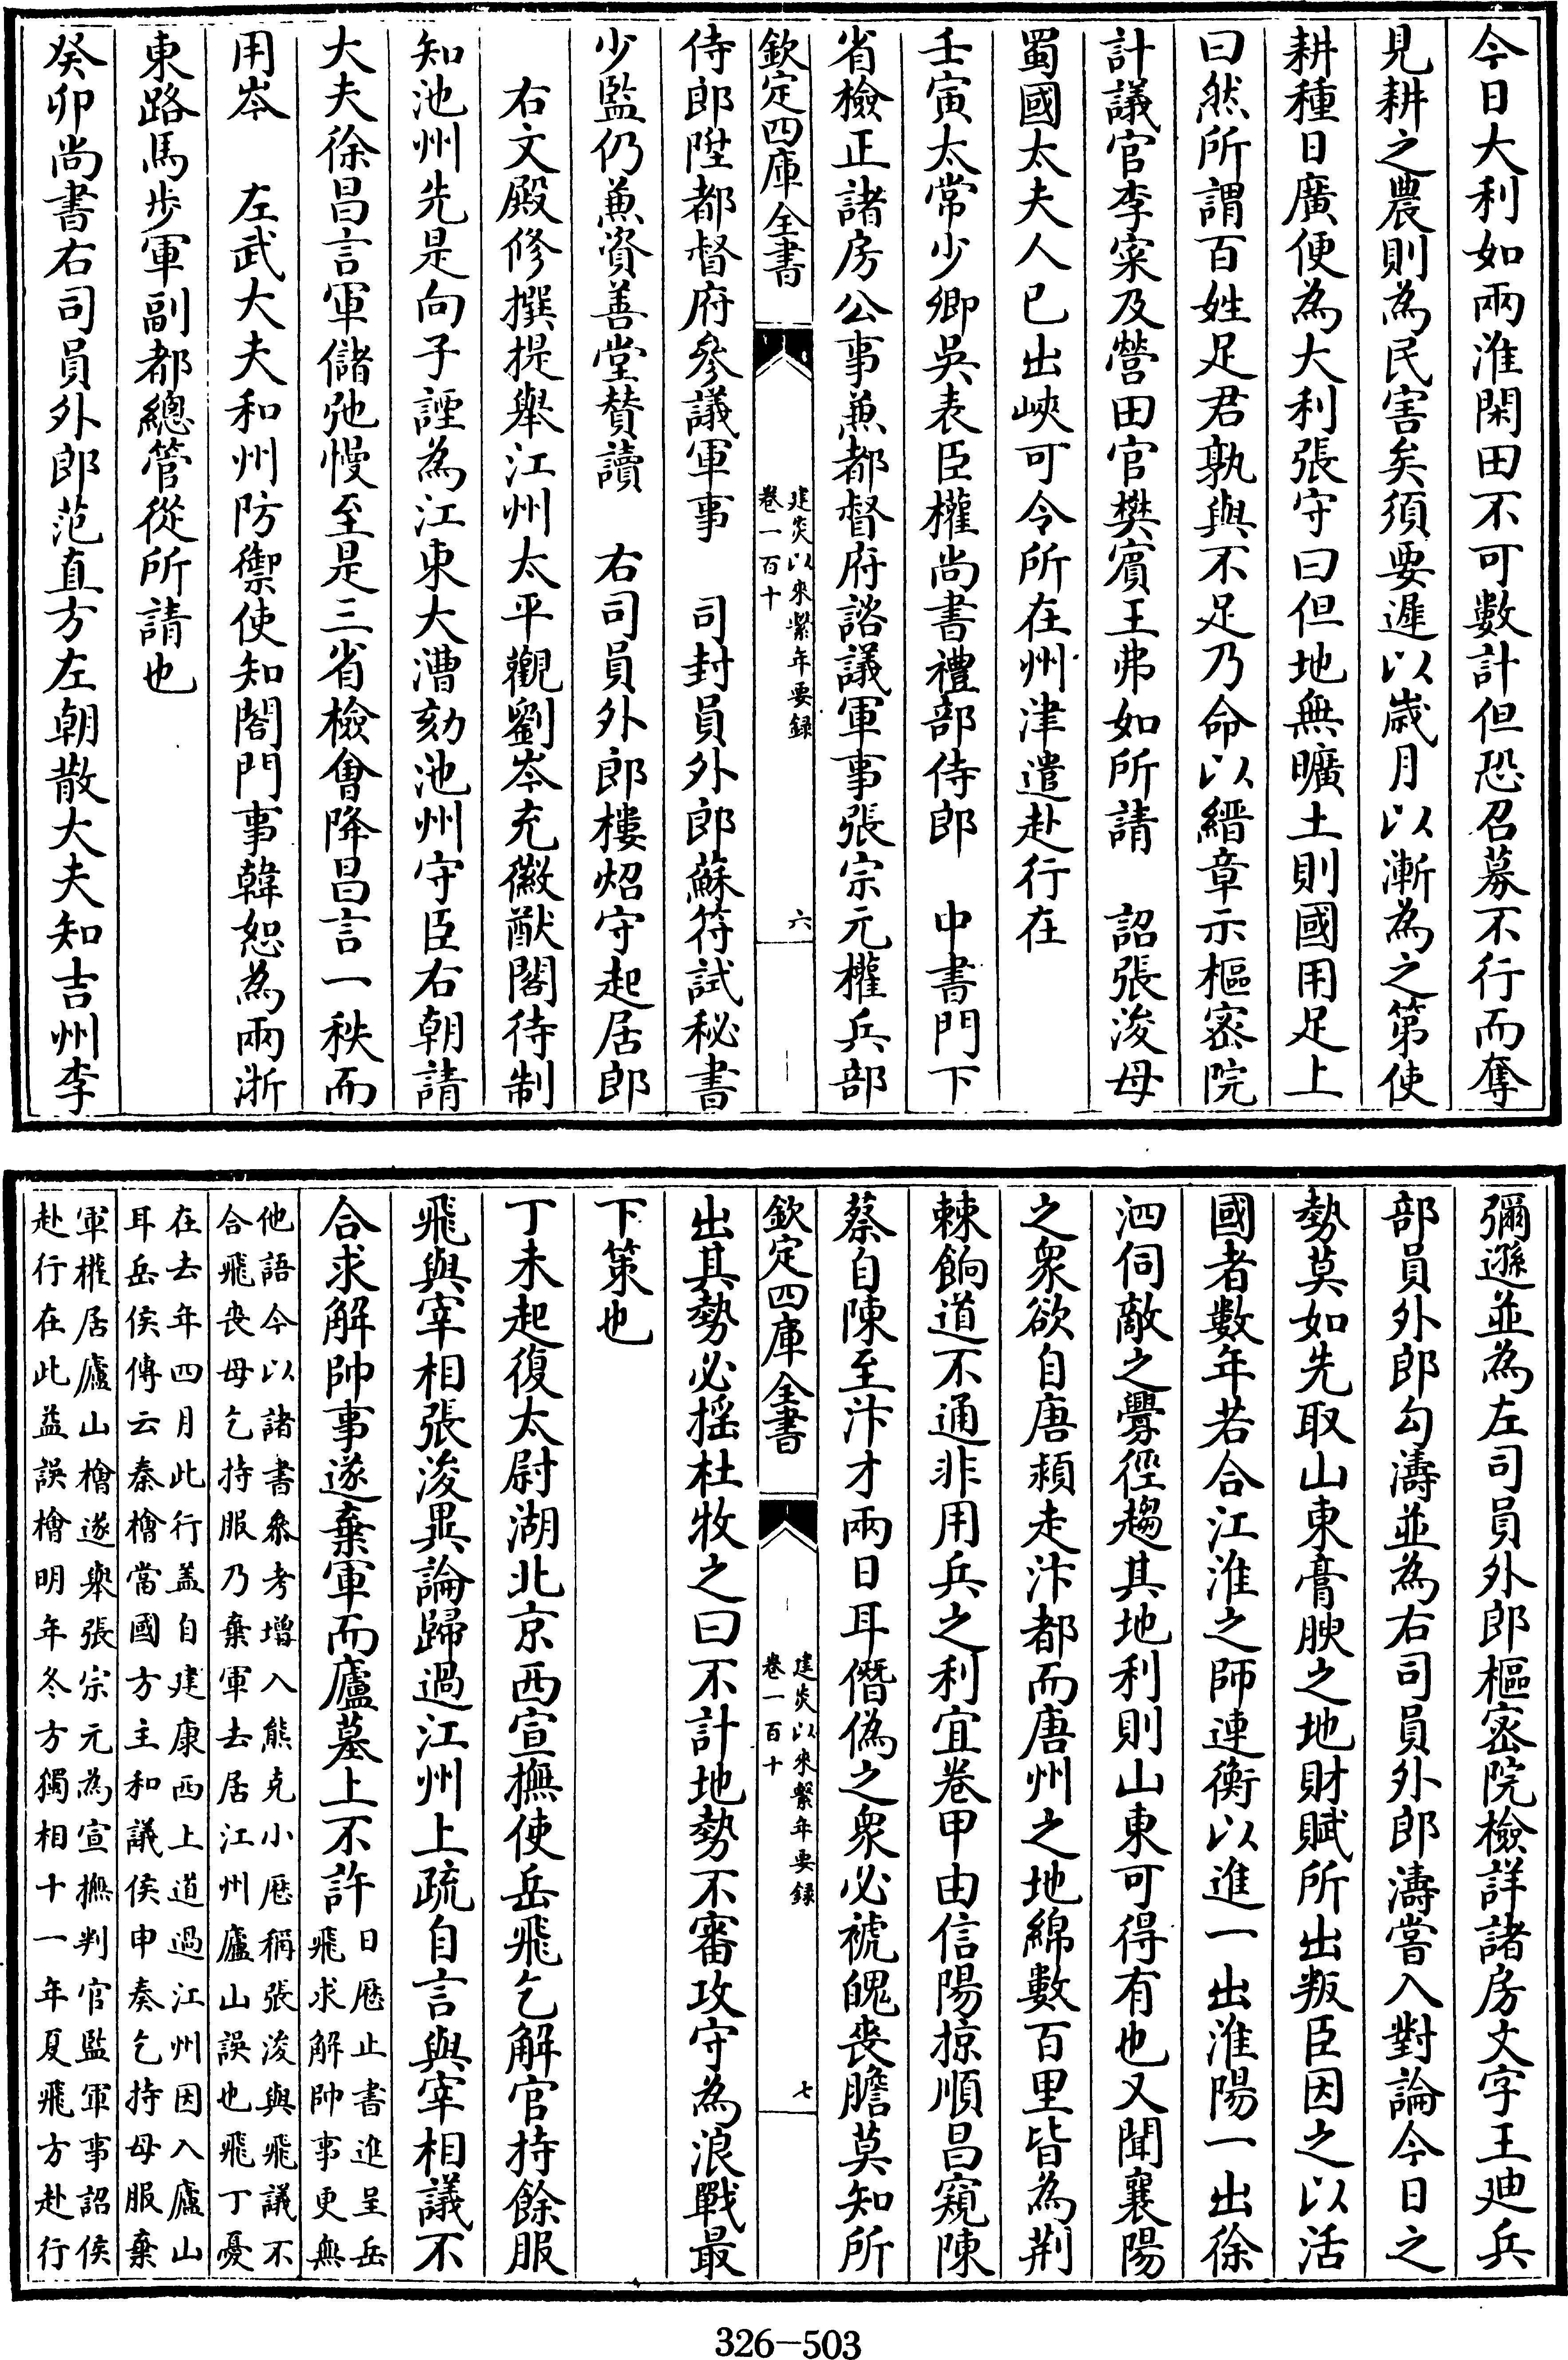 今日大利如兩淮閑田不可數計但恐召募不行而奪
見耕之農則為民害矣須要遲以歲月以漸為之第使
耕種日廣便為大利張守曰但地無曠土則國用足上
曰然所謂百姓足君孰與不足乃命以縉章示樞密院
計議官李寀及營田官樊賓王弗如所請　詔張浚母
蜀國太夫人已出峽可令所在州津遣赴行在
壬寅太常少卿吳表臣權尚書禮部侍郎　中書門下
省檢正諸房公事兼都督府諮議軍事張宗元權兵部
欽定四庫全書
建炎以來繫年要録
卷一百十
六
侍郎陞都督府參議軍事　司封員外郎蘇符試秘書
少監仍兼資善堂贊讀　右司員外郎樓炤守起居郎
右文殿修撰提舉江州太平觀劉岑充徽猷閣待制
知池州先是向子諲為江東大漕劾池州守臣右朝請
大夫徐昌言軍儲弛慢至是三省檢會降昌言一秩而
用岑　左武大夫和州防禦使知閤門事韓恕為兩浙
東路馬步軍副都總管從所請也
癸卯尚書右司員外郎范直方左朝散大夫知吉州李
彌遜並為左司員外郎樞密院檢詳諸房文字王廸兵
部員外郎勾濤並為右司員外郎濤嘗入對論今日之
勢莫如先取山東膏腴之地財賦所出叛臣因之以活
國者數年若合江淮之師連衡以進一出淮陽一出徐
泗伺敵之釁徑趨其地利則山東可得有也又聞襄陽
之衆欲自唐潁走汴都而唐州之地綿數百里皆為荆
棘餉道不通非用兵之利宜卷甲由信陽掠順昌窺陳
蔡自陳至汴才兩日耳僭偽之衆必褫魄喪膽莫知所
欽定四庫全書
建炎以來繫年要録
卷一百十
七
出其勢必揺杜牧之曰不計地勢不審攻守為浪戰最
下策也
丁未起復太尉湖北京西宣撫使岳飛乞解官持餘服
飛與宰相張浚異論歸過江州上疏自言與宰相議不
合求解帥事遂棄軍而廬墓上不許
日厯止書進呈岳
飛求解帥事更無
他語今以諸書叅考增入熊克小厯稱張浚與飛議不
合飛丧母乞持服乃棄軍去居江州廬山誤也飛丁憂
在去年四月此行盖自建康西上道過江州因入廬山
耳岳侯傳云秦檜當國方主和議侯申奏乞持母服棄
軍權居廬山檜遂舉張宗元為宣撫判官監軍事詔侯
赴行在此益誤檜明年冬方獨相十一年夏飛方赴行
326-503